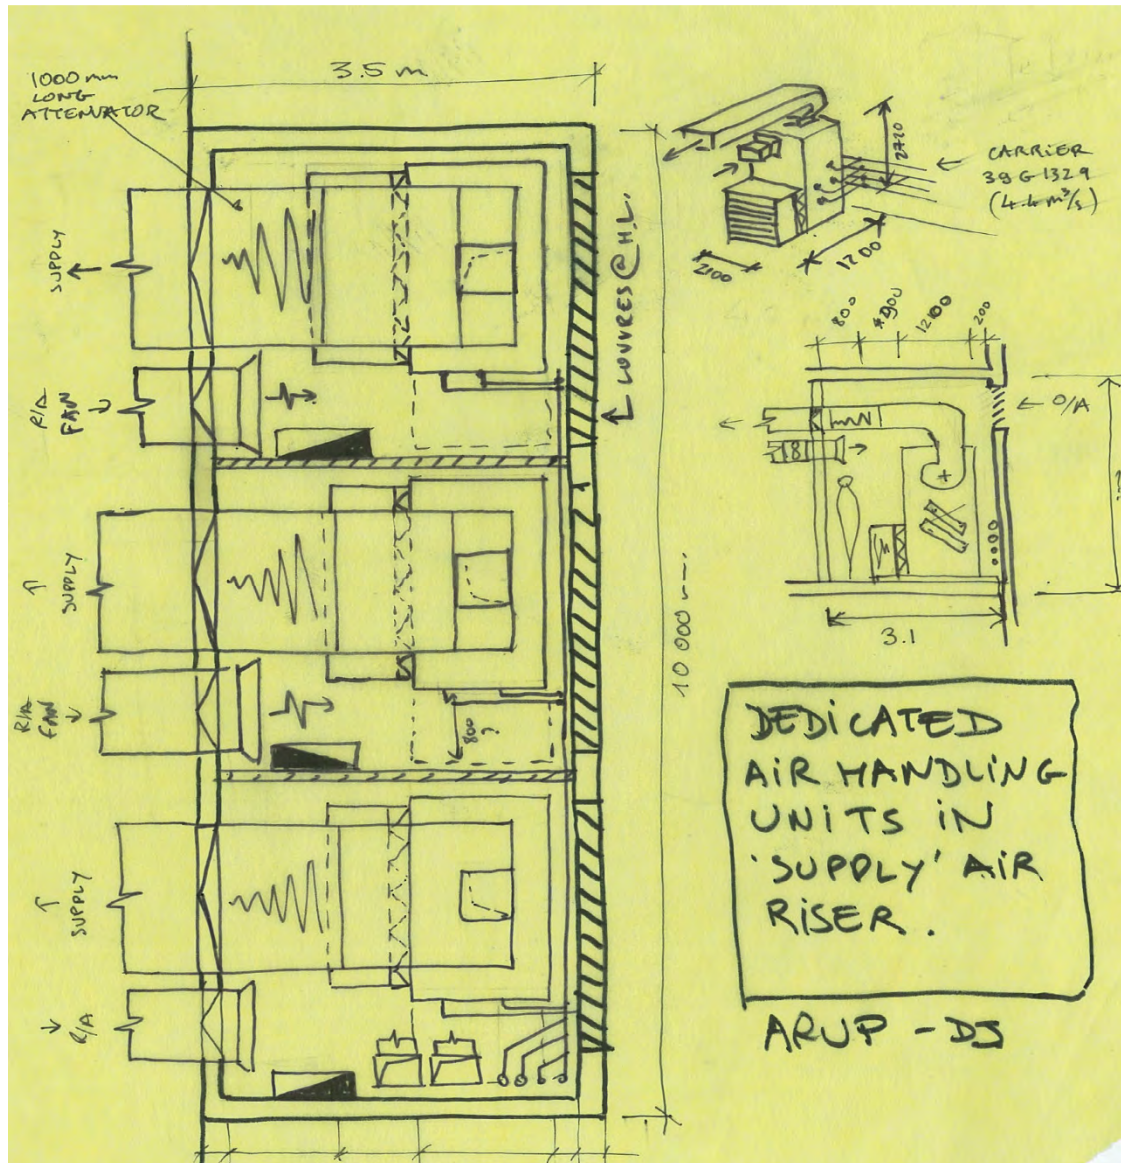 1000mm
LONG
ATTENUATOR
3.5 m
SUPPLY
R/A
FAN
SUPPLY
R/A
FAN
SUPPLY
R/A
800
?
LOUVRES @ H.L.
10 000
2720
CARRIER
39G 1329
(4.4 m³/s)
2100
1200
800
900
1200
200
O/A
3.1
DEDICATED
AIR HANDLING
UNITS IN
'SUPPLY' AIR
RISER.
ARUP - DJ